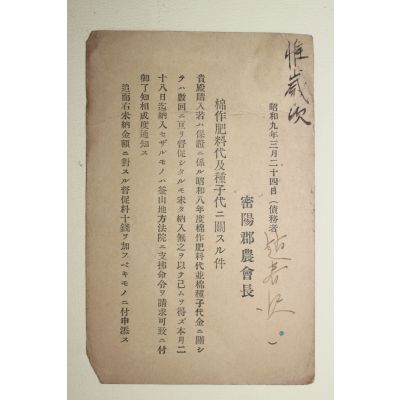 惟歲次
昭和九年三月二十四日（債務者）
密陽郡農會長
棉作肥料代及種子代ニ關スル件
貴殿購入若ハ保證ニ係ル昭和八年度棉作肥料代並棉種子代金ニ關シ
テハ數回ニ亘リ督促シタルモ未タ納入無之ヲ以テ已ムヲ得ズ本月二
十八日迄納入セザルモノハ釜山地方法院ニ支拂命令ヲ請求可致ニ付
御了知相成度通知ス
追而右未納金額ニ對スル督促料十錢ヲ加フベキモノニ付申添ス